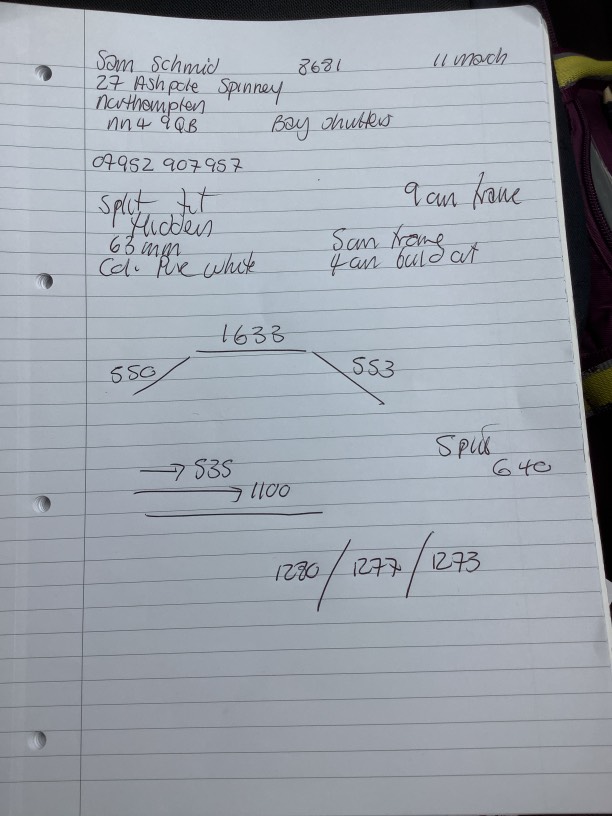 Sam Schmid 8681 11 March
27 Ashpole Spinney
Northampton
NN4 9QB Bay shutters
07952 907957
Split tilt 9 cm frame
Hidden
63 mm 5cm frame
Col. Pure white 4cm build out
1633
550 553
535
1100
Split
640
1280 / 1277 / 1273